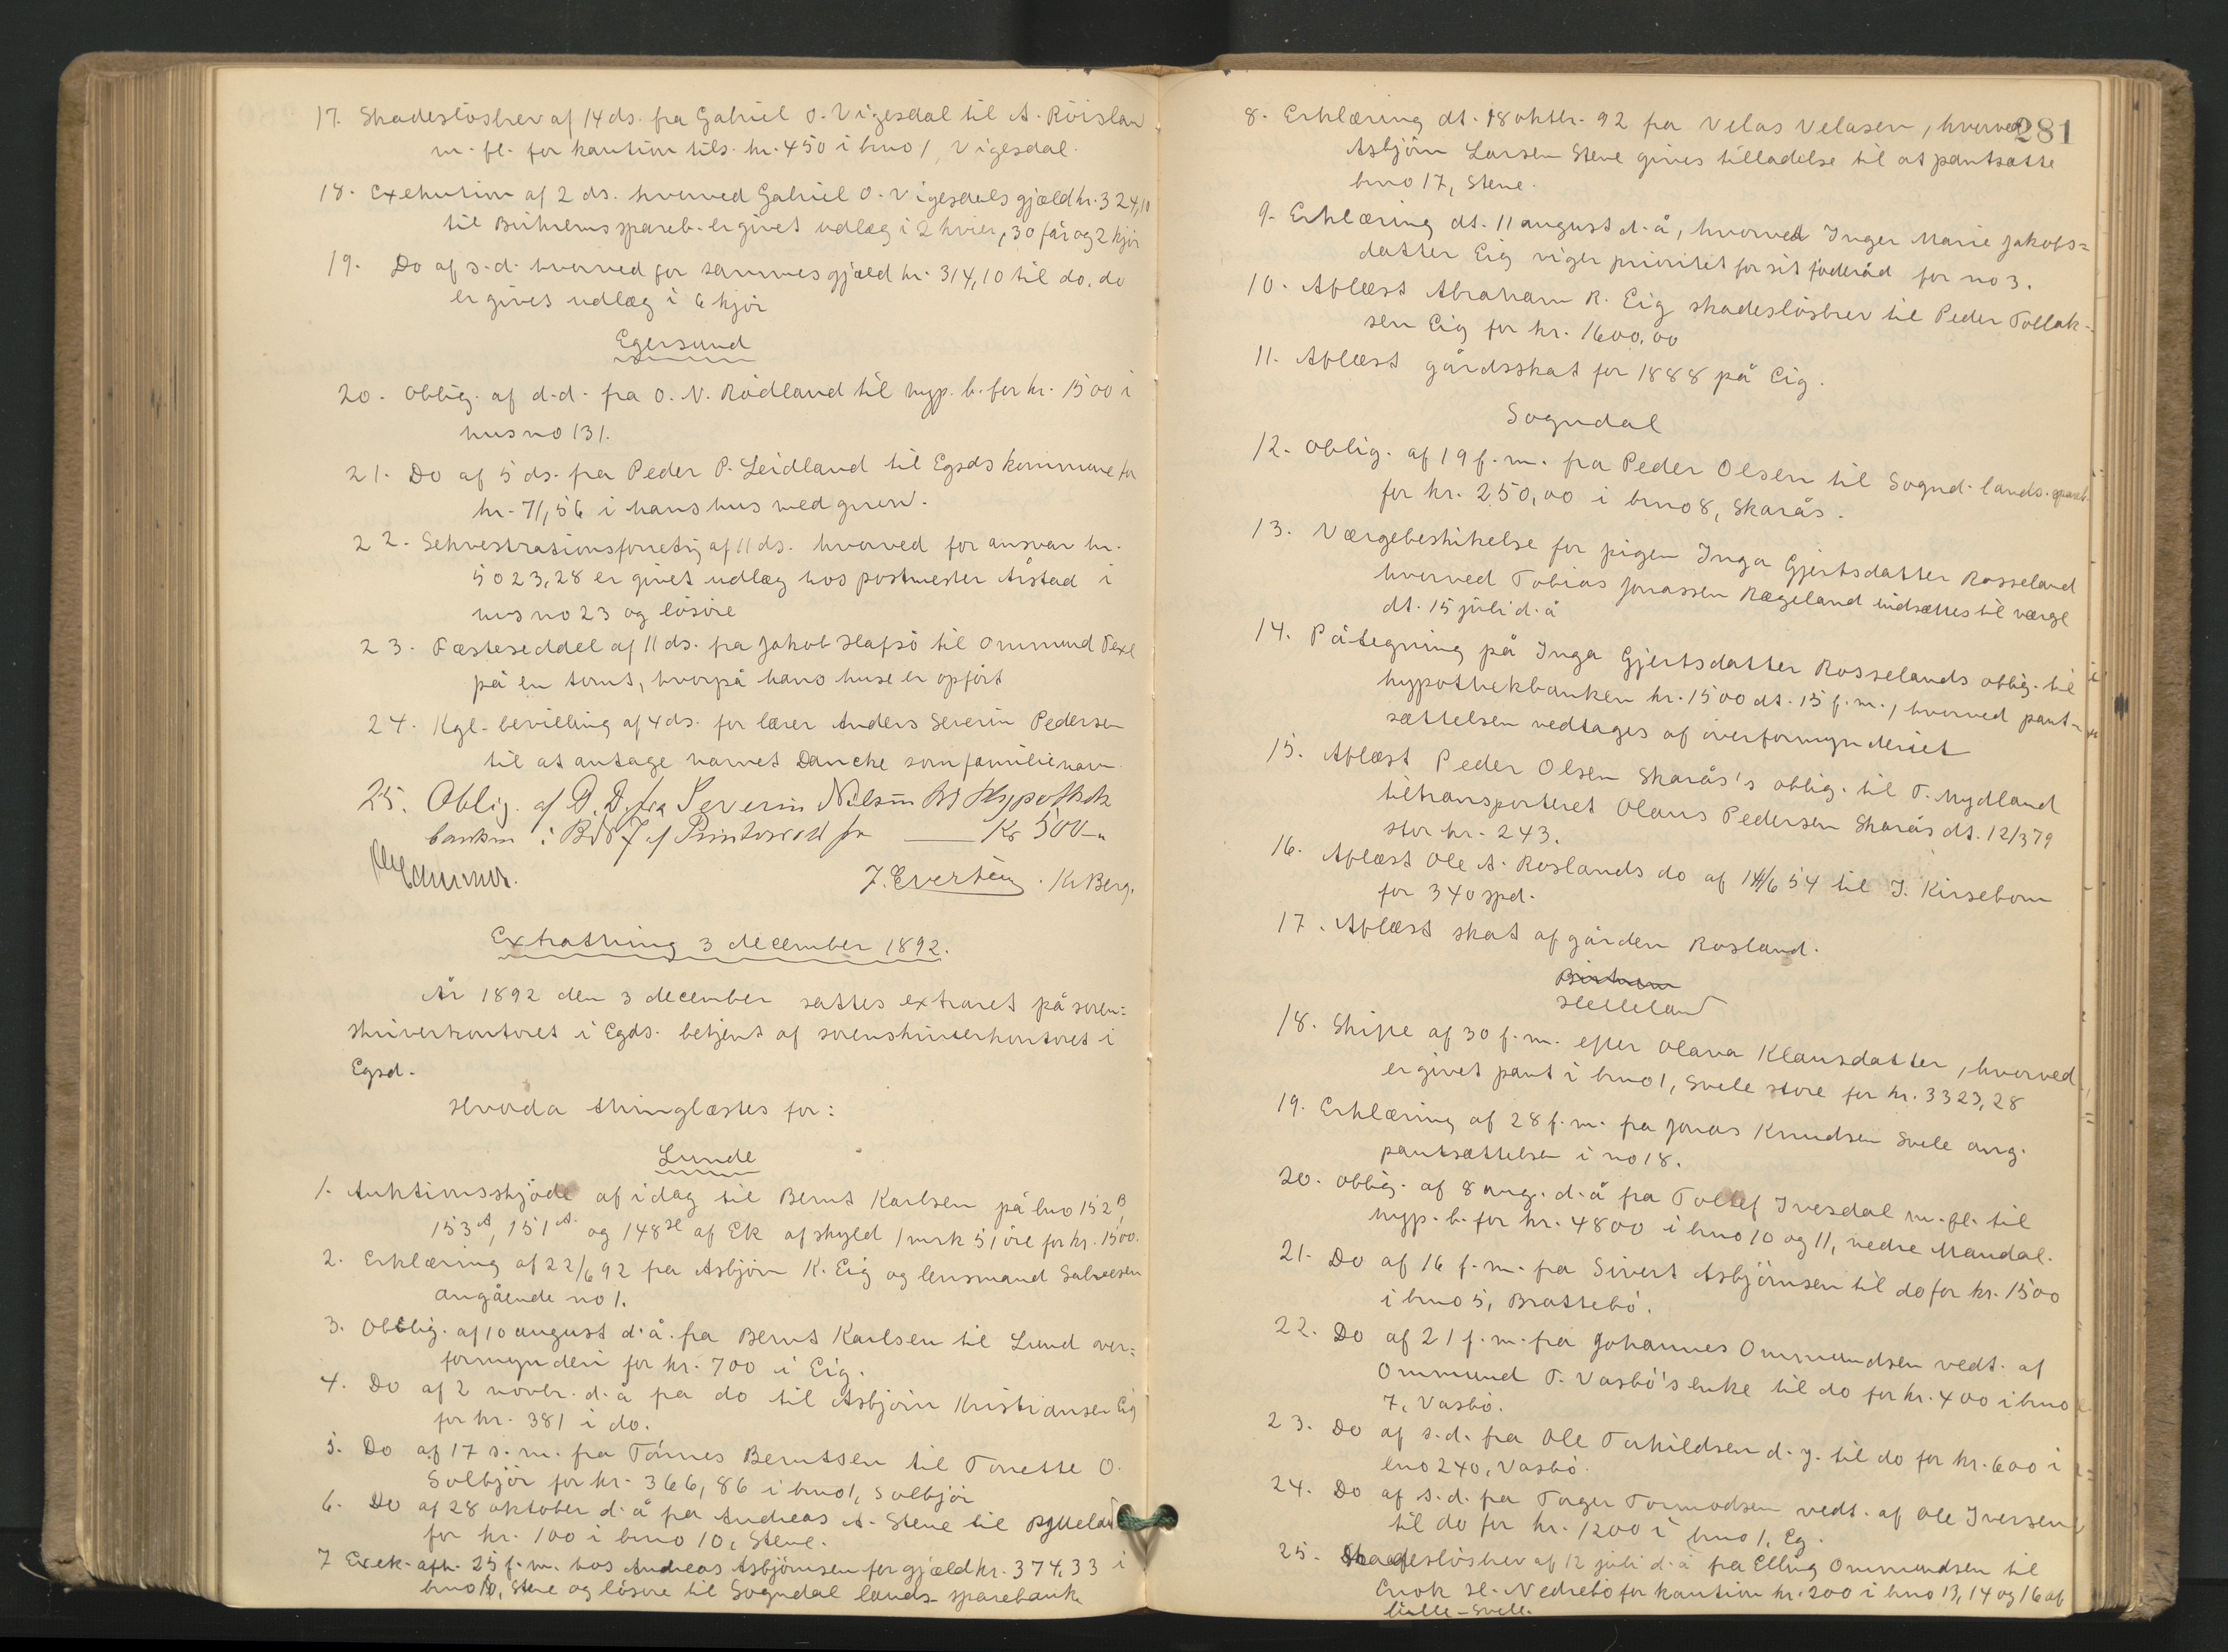 17. Skadesløsbrev af 14 ds. fra Gabriel O. Vigesdal til A. Röislan
m. fl. for kaution tils. kr. 450 i bno 1, Vigesdal.
18. Exekution af 2 ds. hvorved Gabriel O. Vigesdals gjæld kr. 324,10
til Birkrems spareb. er givet udlæg i 2 kvier, 30 får og 2 kjör
19. Do af s.d. hvorved for sammes gjæld kr. 314,10 til do. do
er givet udlæg i 6 kjör
Egersund
20. Oblig. af d.d. fra O. N. Rödland til hyp. b. for kr. 1500 i
hus no 131.
21. Do af 5 ds. fra Peder P. Leidland til Egsds kommune for
kr. 71,56 i hans hus med grund.
22. Sekvestrationsforretng af 11 ds. hvorved for ansvar kr.
5023,28 er givet udlæg hos postmester Årstad i
hus no 23 og lösöre
23. Fæsteseddel af 11 ds. fra Jakob Hafsö til Ommund Texe
på en tomt, hvorpå hans huse er opfört
24. Kgl. bevilling af 4 ds. for lærer Anders Severin Pedersen
til at antage navnet Dancke som familienavn
25. Oblig. af D.D. fra Severin Nilsen til Hypothek
banken i B No 7 af for Kr 500 "
J. Evertsen . K. Berg.
Extrathing 3 december 1892.
År 1892 den 3 december sattes extraret på soren=
skriverkontoret i Egds. betjent af sorenskriverkontoret i
Egsd.
Hvorda thinglæstes for:
Lunde
1. Auktionsskjöde af idag til Bernt Karlsen på lno 152 B,
153 A, 151 A. og 148 H af Ek af skyld 1 mrk 51 öre for kr. 1500.
2. Erklæring af 22/6 92 fra Asbjörn K. Eig og lensmand Salvesen
angående no 1.
3. Oblig. af 10 august d.å. fra Bernt Karlsen til Lund over=
formynderi for kr. 700 i Eig.
4. Do af 2 novbr. d.å fra do til Asbjörn Kristiansen Eig
for kr. 381 i do.
5. Do af 17 s.m. fra Tönnes Berntsen til Tonette O.
Solbjör for kr. 366,86 i bno 1, Solbjör
6. Do af 28 oktober d.å fra Andreas A. Stene til
for kr. 100 i bno 10, Stene.
7 Exek. afh. 25 f.m. hos Andreas Asbjörnsen for gjæld kr. 374,33 i
bno 10, Stene og lösöre til Sogndal lands. sparebank
281
8. Erklæring dt. 18 oktbr. 92 fra Velas Velasen, hvorved
Asbjörn Larsen Stene gives tilladelse til at pantsætte
bno 17, Stene.
9. Erklæring dt. 11 august d.å, hvorved Inger Marie Jakobs=
datter Eig viger prioritet for sit föderåd for no 3.
10. Aflæst Abraham R. Eig skadeslösbrev til Peder Tollak-
sen Eig for kr. 1600,00
11. Aflæst gårdsskat for 1888 på Eig.
Sogndal
12. Oblig. af 19 f.m. fra Peder Olsen til Sognd. lands. spareb.
for kr. 250,00 i bno 8, Skarås.
13. Værgebeskikelse for pigen Inga Gjertsdatter Rosseland
hvorved Tobias Jonassen Rægeland indsættes til værge
dt. 15 juli d.å
14. Påtegning på Inga Gjertsdatter Rosselands oblig. til
hypothekbanken kr. 1500 dt. 15 f.m., hvorved pant-
sættelsen vedtages af overformynderiet
15. Aflæst Peder Olsen Skarås's oblig. til T. Mydland
tiltransporteret Olaus Pedersen Skarås dt. 12/3 79
stor kr. 243.
16. Aflæst Ole A. Roslands do af 14/6 54 til J. Kirsebom
for 340 spd.
17. Aflæst skat af gården Rosland.
Birkrem
Helleland
18. Skifte af 30 f.m. efter Olava Klausdatter, hvorved
er givet pant i bno 1, Svele store for kr. 3323,28
19. Erklæring af 28 f.m. fra Jonas Knudsen Svele ang.
pantsættelsen i no 18.
20. Oblig. af 8 aug. d.å fra Tollef Ivesdal m. fl. til
hyp. b. for kr. 4800 i bno 10 og 11, nedre Maudal.
21. Do af 16 f.m. fra Sivert Asbjörnsen til do for kr. 1500
i bno 5, Brattebö.
22. Do af 21 f.m. fra Johannes Ommundsen vedt. af
Ommund T. Vasbö's enke til do for kr. 400 i bno
7, Vasbö.
23. Do af s.d. fra Ole Torkildsen d.y. til do for kr. 600 i
lno 240, Vasbö.
24. Do af s.d. fra Torger Tormodsen vedt. af Ole Iversen
til do for kr. 1200 i bno 1, Eg.
25. Skadeslösbrev af 12 juli d.å fra Elling Ommundsen til
Enok H. Nedrebö for kaution kr. 200 i bno 13, 14 og 16 af
lille-Svele.